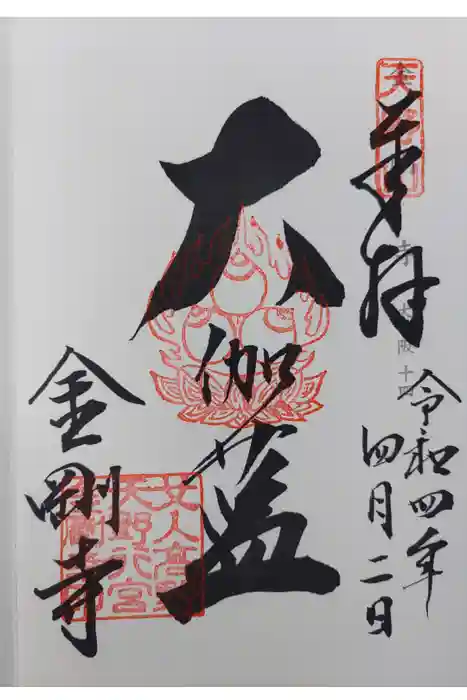 奉拝
令和四年
四月二日
大伽藍
金剛寺
女人高野
天野行宮
金剛寺印